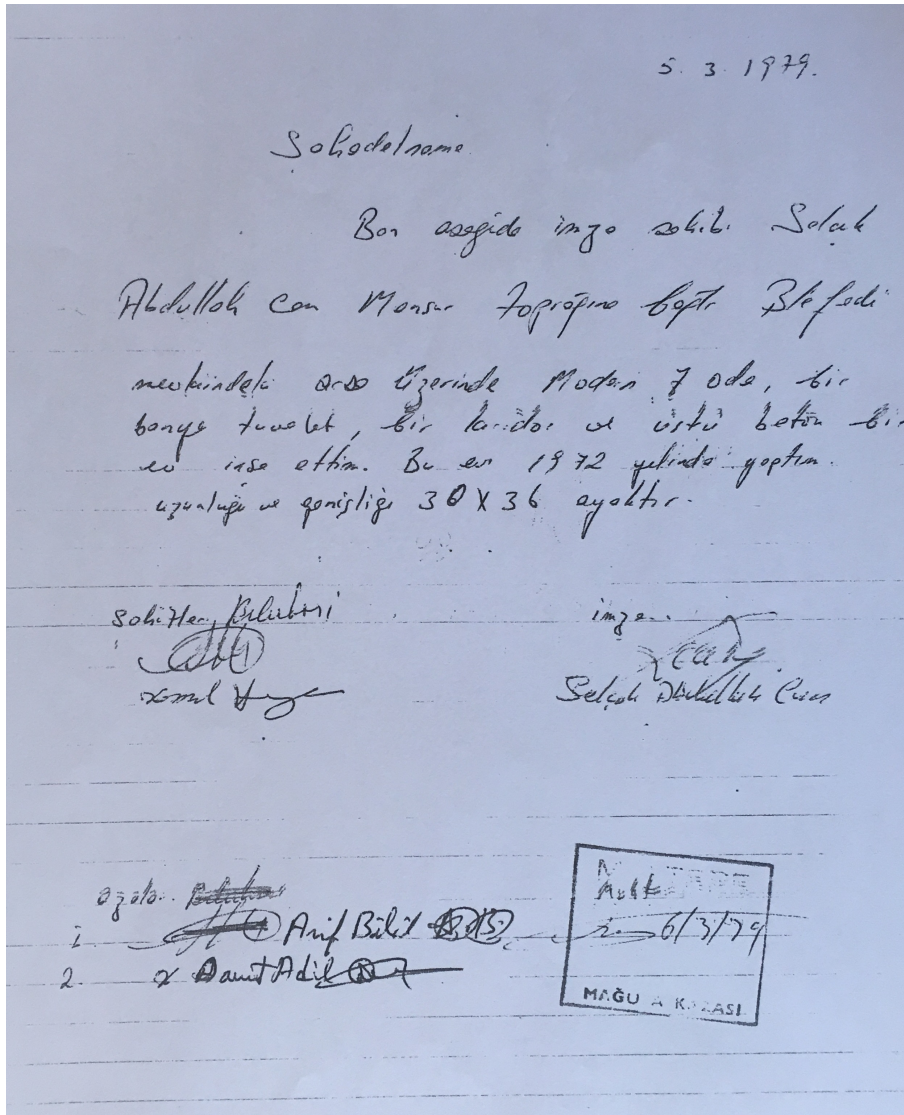 5. 3. 1979.
Şahadetname
Ben aşağıda imza sahibi Selçuk
Abdullah Can Mansur toprağına bağlı
mevkiindeki arsa üzerinde Modern 7 oda, bir
banyo tuvalet, bir karidor ve üstü beton bir
ev inşa ettim. Bu evi 1972 yılında yaptım.
uzunluğu ve genişliği 30 X 36 ayaktır.
Şahitler
imza
Kemal
Selçuk Abdullah Can
azalar
1. Arif Bilil
2. x Davut Adil
6/3/79
MAĞU A K ZASI